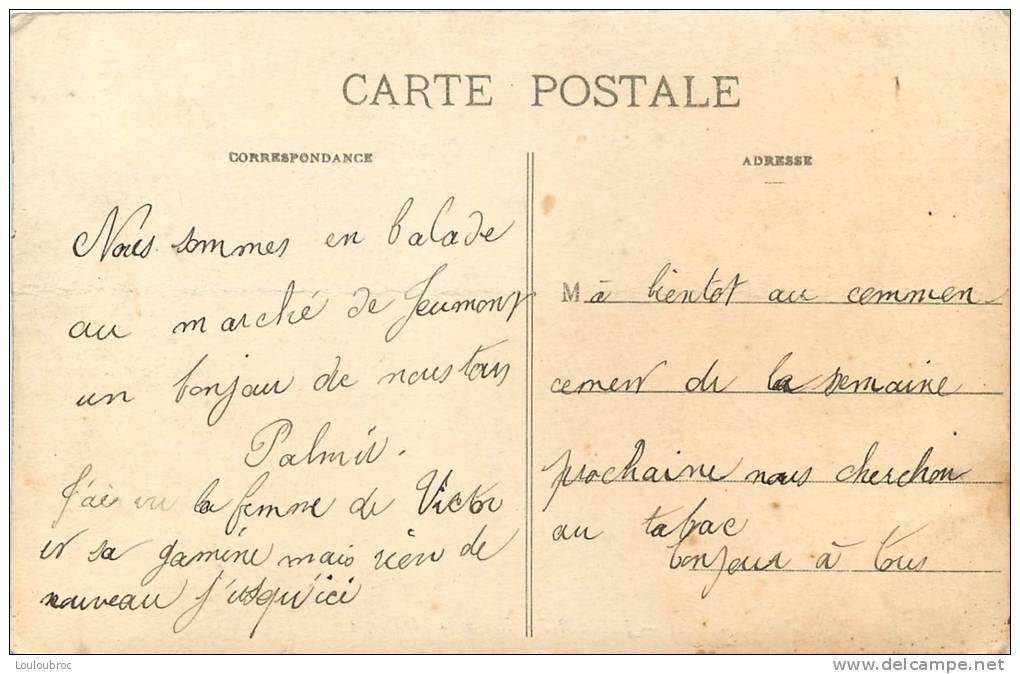 CARTE POSTALE
CORRESPONDANCE
Nous sommes en balade
au marché de Jeumont
un bonjour de nous tous
Palmir.
J'ai vu la femme de Victor
et sa gamine mais rien de
nouveau j'usqu'ici
ADRESSE
M à bientot au commen
cement de la semaine
prochaine nous cherchon
au tabac
bonjour à tous
Louloubroc
www.delcampe.net